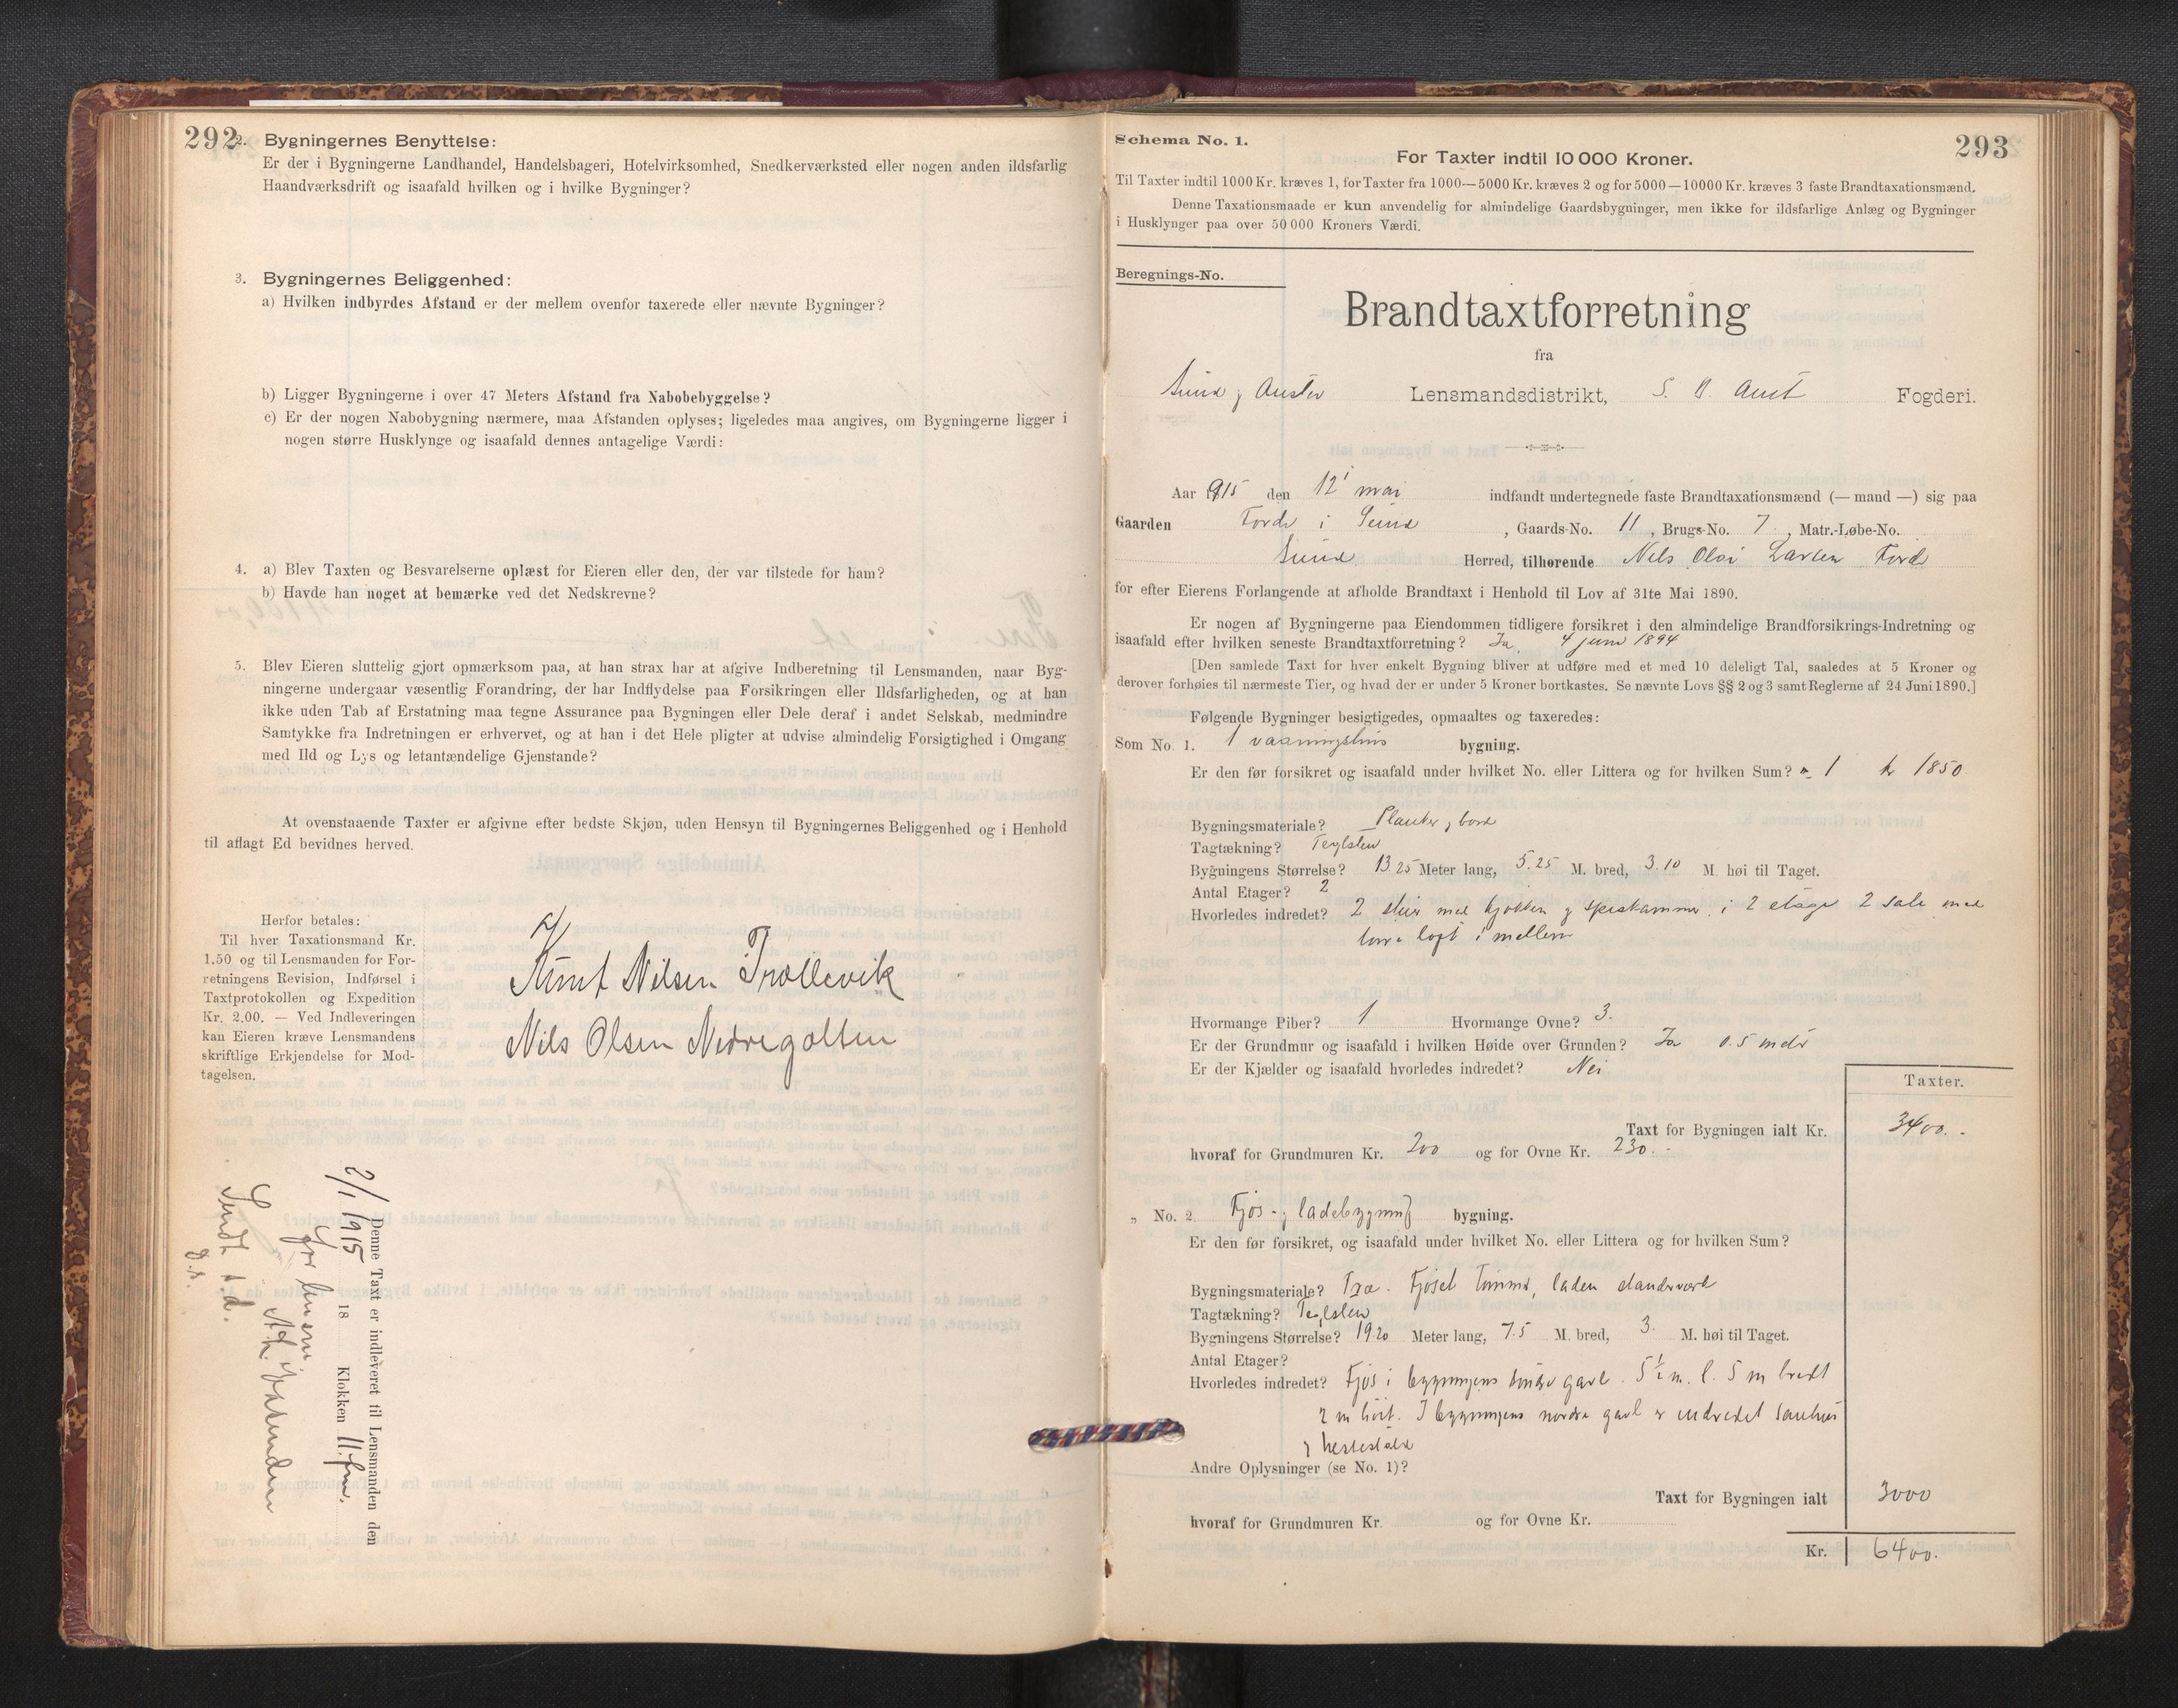 292
2. Bygningernes Benyttelse:
Er der i Bygningerne Landhandel, Handelsbageri, Hotelvirksomhed, Snedkerværksted eller nogen anden ildsfarlig
Haandværksdrift og isaafald hvilken og i hvilke Bygninger?
3. Bygningernes Beliggenhed:
a) Hvilken indbyrdes Afstand er der mellem ovenfor taxerede eller nævnte Bygninger?
b) Ligger Bygningerne i over 47 Meters Afstand fra Nabobebyggelse?
c) Er der nogen Nabobygning nærmere, maa Afstanden oplyses; ligeledes maa angives, om Bygningerne ligger i
nogen større Husklynge og isaafald dennes antagelige Værdi:
4. a) Blev Taxten og Besvarelserne oplæst for Eieren eller den, der var tilstede for ham?
b) Havde han noget at bemærke ved det Nedskrevne?
5. Blev Eieren sluttelig gjort opmærksom paa, at han strax har at afgive Indberetning til Lensmanden, naar Byg-
ningerne undergaar væsentlig Forandring, der har Indflydelse paa Forsikringen eller Ildsfarligheden, og at han
ikke uden Tab af Erstatning maa tegne Assurance paa Bygningen eller Dele deraf i andet Selskab, medmindre
Samtykke fra Indretningen er erhvervet, og at han i det Hele pligter at udvise almindelig Forsigtighed i Omgang
med Ild og Lys og letantændelige Gjenstande?
At ovenstaaende Taxter er afgivne efter bedste Skjøn, uden Hensyn til Bygningernes Beliggenhed og i Henhold
til aflagt Ed bevidnes herved.
Herfor betales:
Til hver Taxationsmand Kr.
1.50 og til Lensmanden for For-
retningens Revision, Indførsel i
Taxtprotokollen og Expedition
Kr. 2.00. — Ved Indleveringen
kan Eieren kræve Lensmandens
skriftlige Erkjendelse for Mod-
tagelsen.
Knut Nilsen Trollevik
Nils Olsen Nedregolten
Denne Taxt er indleveret til Lensmanden den
2/1 1915 18 Klokken 11 fm.
for lensm.
Sendt s.d.
293
Schema No. 1.
For Taxter indtil 10 000 Kroner.
Til Taxter indtil 1000 Kr. kræves 1, for Taxter fra 1000—5000 Kr. kræves 2 og for 5000—10000 Kr. kræves 3 faste Brandtaxationsmænd.
Denne Taxationsmaade er kun anvendelig for almindelige Gaardsbygninger, men ikke for ildsfarlige Anlæg og Bygninger
i Husklynger paa over 50 000 Kroners Værdi.
Beregnings-No.
Brandtaxtforretning
fra
Sund og Auster Lensmandsdistrikt, S. B. Amt Fogderi.
Aar 1915 den 12 mai indfandt undertegnede faste Brandtaxationsmænd (— mand —) sig paa
Gaarden Forde i Sund, Gaards-No. 11, Brugs-No. 7, Matr.-Løbe-No.
Sund Herred, tilhørende Nels Olai Larsen Forde
for efter Eierens Forlangende at afholde Brandtaxt i Henhold til Lov af 31te Mai 1890.
Er nogen af Bygningerne paa Eiendommen tidligere forsikret i den almindelige Brandforsikrings-Indretning og
isaafald efter hvilken seneste Brandtaxtforretning? Ja, 4 juni 1894
[Den samlede Taxt for hver enkelt Bygning bliver at udføre med et med 10 deleligt Tal, saaledes at 5 Kroner og
derover forhøies til nærmeste Tier, og hvad der er under 5 Kroner bortkastes. Se nævnte Lovs §§ 2 og 3 samt Reglerne af 24 Juni 1890.]
Følgende Bygninger besigtigedes, opmaaltes og taxeredes:
Som No. 1. 1 vaaningshus bygning.
Er den før forsikret og isaafald under hvilket No. eller Littera og for hvilken Sum? 1 kr 1850
Bygningsmateriale? Planker og bord
Tagtækning? Teglsten
Bygningens Størrelse? 13.25 Meter lang, 5.25 M. bred, 3.10 M. høi til Taget.
Antal Etager? 2
Hvorledes indredet? 2 stuer med kjøkken og spiskammer, i 2 etage 2 sale med
torre loft i mellem
Hvormange Piber? 1 Hvormange Ovne? 3.
Er der Grundmur og isaafald i hvilken Høide over Grunden? Ja 0.5 meter
Er der Kjælder og isaafald hvorledes indredet? Nei
Taxter.
Taxt for Bygningen ialt Kr. 3400.-
hvoraf for Grundmuren Kr. 200 og for Ovne Kr. 230.-
„ No. 2 Fjos- og ladebygning bygning.
Er den før forsikret, og isaafald under hvilket No. eller Littera og for hvilken Sum?
Bygningsmateriale? Træ. Fjøset tømmer, laden standerværk
Tagtækning? Teglsten
Bygningens Størrelse? 19.20 Meter lang, 7.5 M. bred, 3. M. høi til Taget.
Antal Etager?
Hvorledes indredet? Fjøs i bygningens søndre gavl. 5½ m. l. 5 m bredt
2 m høit. I bygningens nordre gavl er indredet sauehus
og hestestald
Andre Oplysninger (se No. 1)?
Taxt for Bygningen ialt 3000
hvoraf for Grundmuren Kr. og for Ovne Kr.
Kr. 6400.